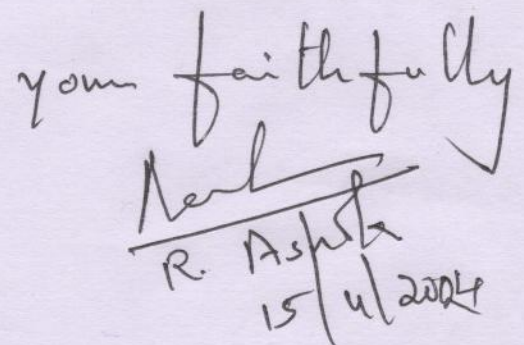 your faithfully
R. Ashok
15/4/2024